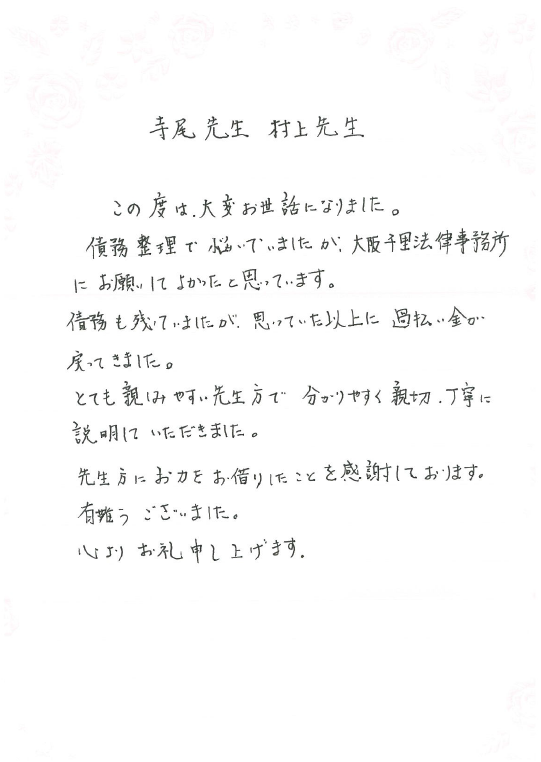 寺尾先生 村上先生
この度は、大変お世話になりました。
債務整理で悩んでいましたが、大阪千里法律事務所
にお願いしてよかったと思っています。
債務も残っていましたが、思っていた以上に過払い金が
戻ってきました。
とても親しみやすい先生方で分かりやすく親切、丁寧に
説明していただきました。
先生方にお力をお借りしたことを感謝しております。
有難うございました。
心よりお礼申し上げます。